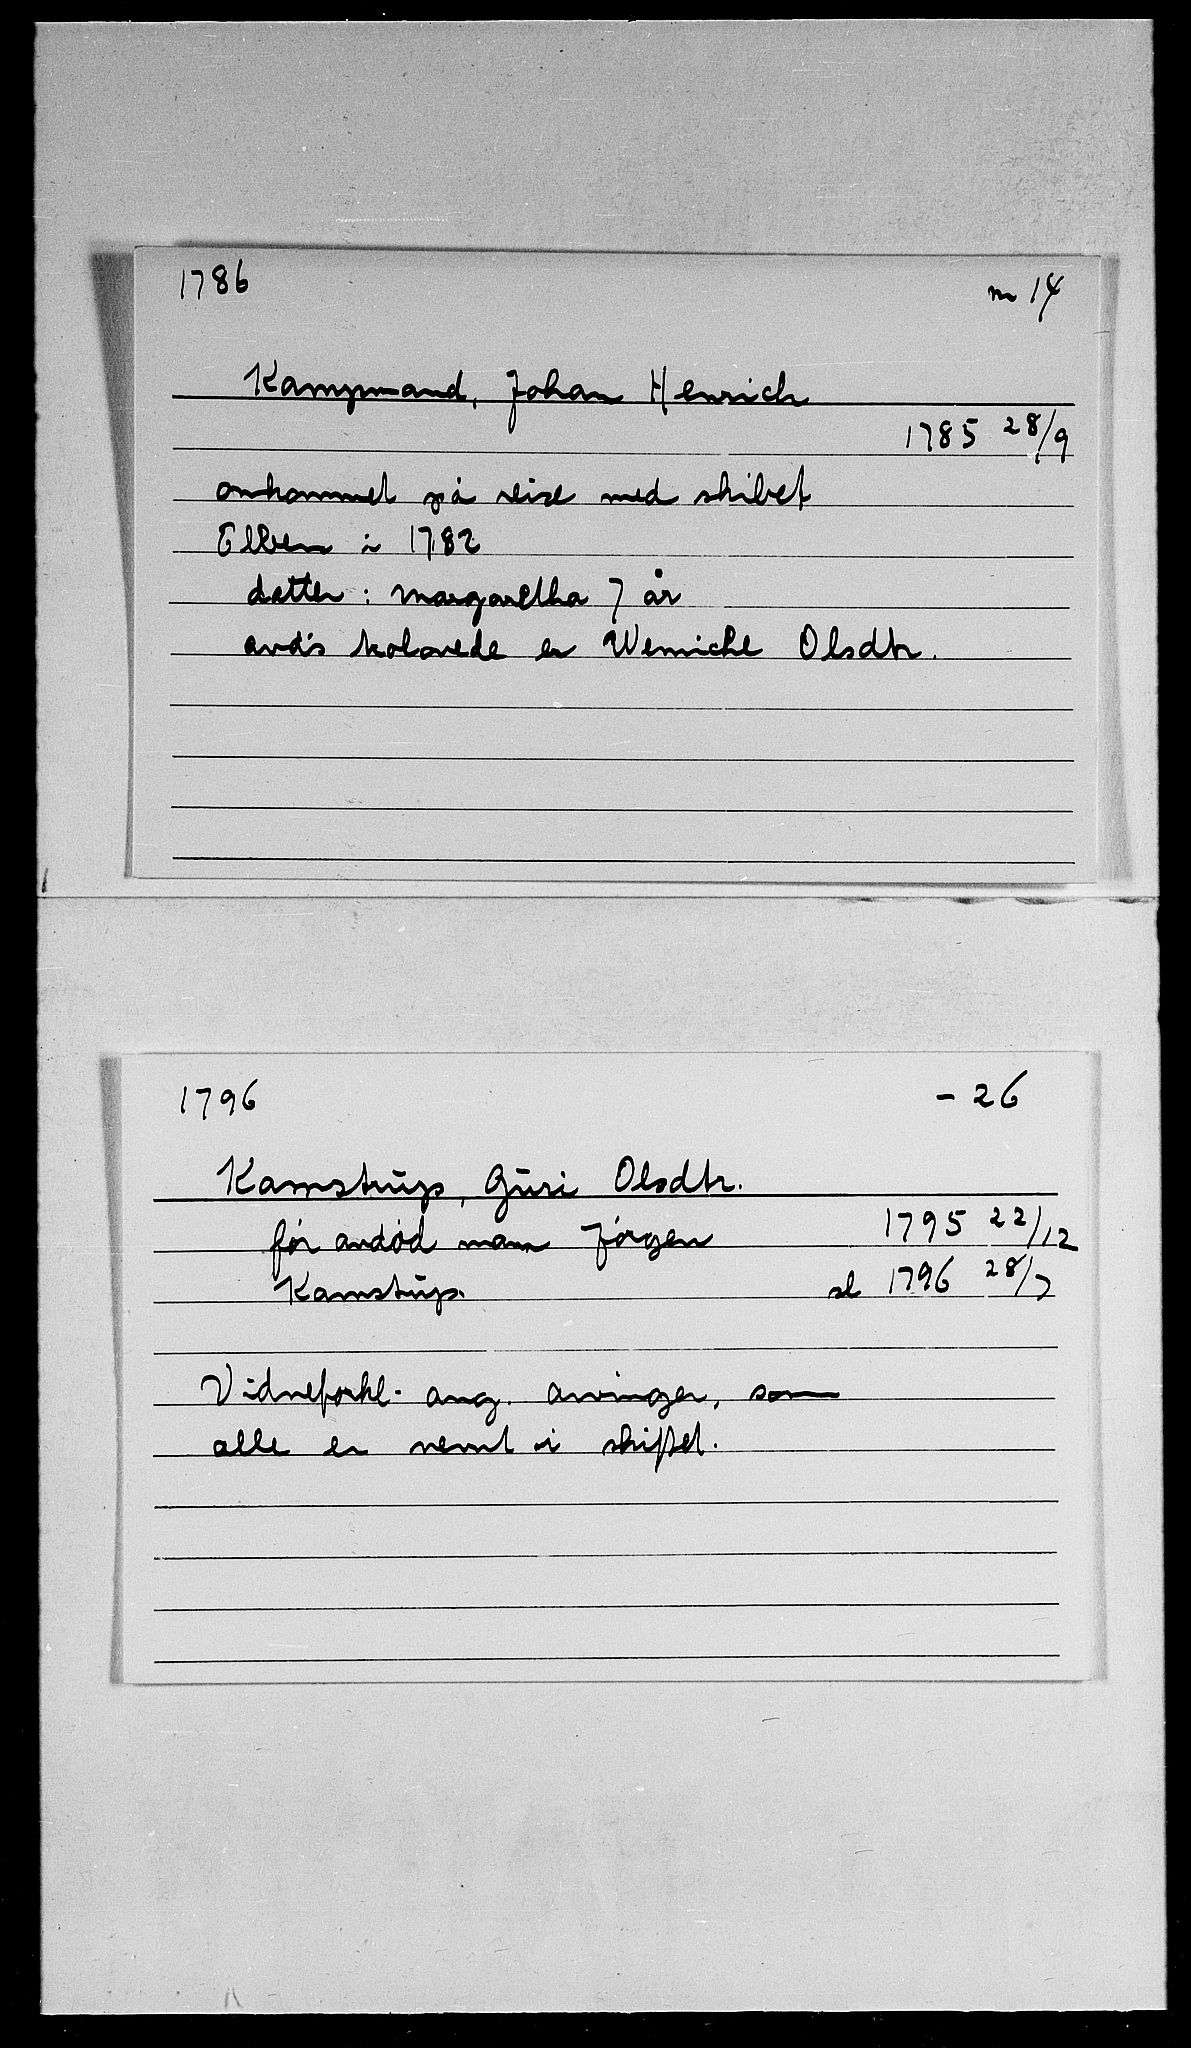 1786 m 14
Kampmand, Johan Henrich
1785 28/9
omkommet på reise med skibet
Elben i 1782
datter: Margaretha 7 år
avd's trolovede er Wenniche Olsdtr.
1796 - 26
Kamstrup, Guri Olsdtr.
før avdød man Jørgen 1795 22/12
Kamstrup. sl 1796 28/7
Vidneforkl. ang. arvinger, som
alle er nevnt i skiftet.